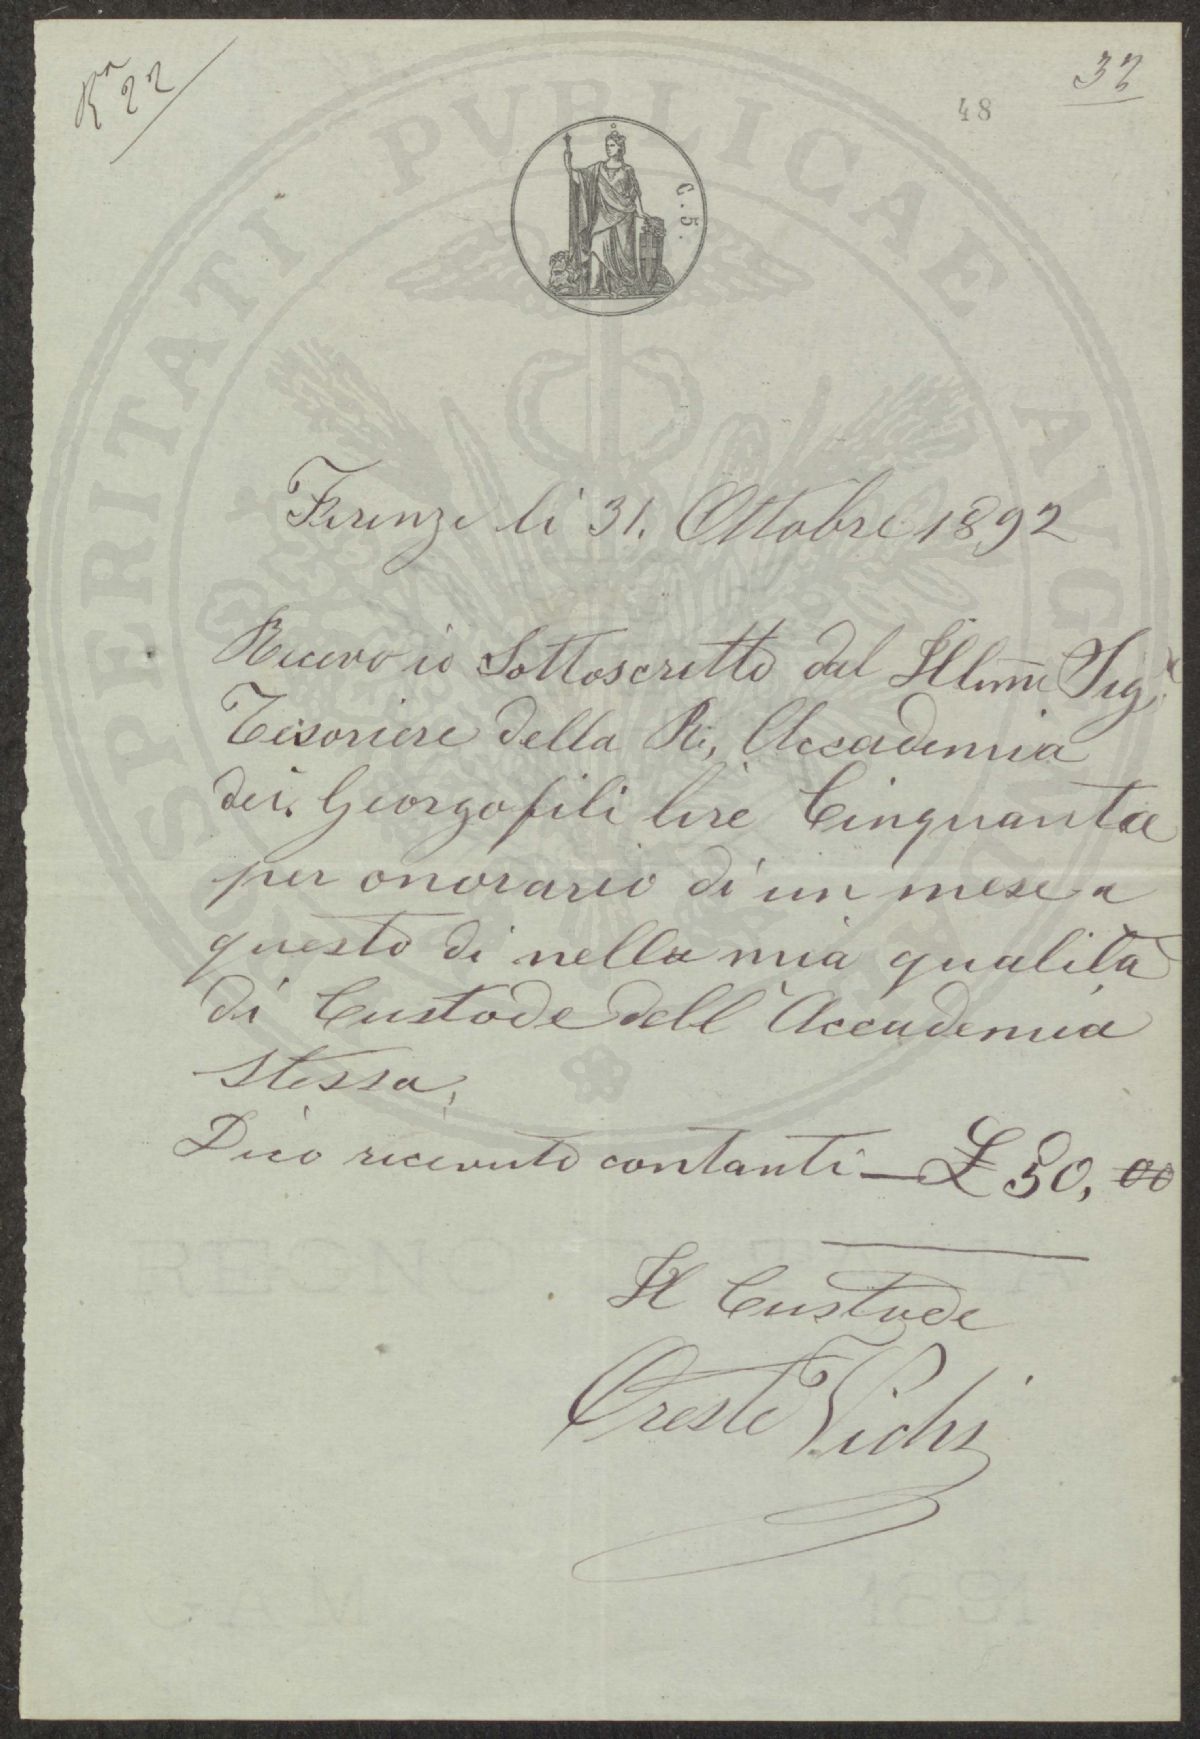 Ra 22
37
48
C. 5.
SPERITATI PVBLICAE AVG
Firenze li 31. Ottobre 1892
Ricevo io Sottoscritto dal Illmo Sigr
Tesoriere della R. Accademia
dei Georgofili lire Cinquanta
per onorario di un mese a
questo di nella mia qualità
di Custode dell'Accademia
Stessa,
Dico ricevuto contanti — £ 50, 00
Il Custode
Oreste Vichi